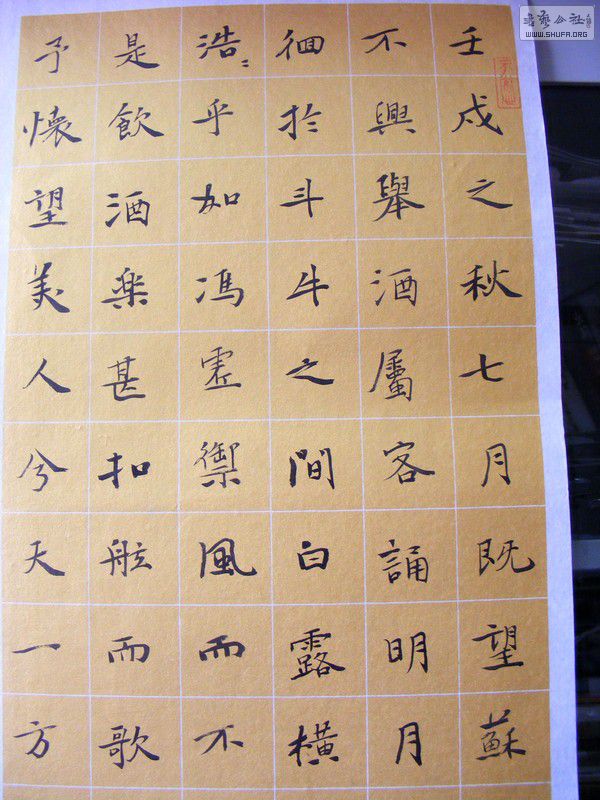 壬戌之秋七月既望蘇
不興舉酒屬客誦明月
徊於斗牛之間白露橫
浩〻乎如馮虛御風而不
是飲酒樂甚扣舷而歌
予懷望美人兮天一方
書藝公社
WWW.SHUFA.ORG